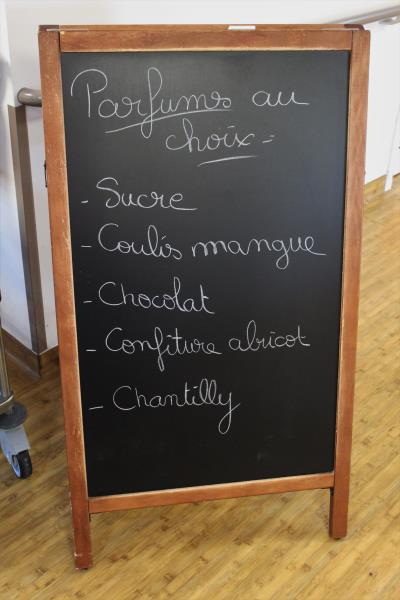 Parfums au
choix =
- Sucre
- Coulis mangue
- Chocolat
- Confiture abricot
- Chantilly